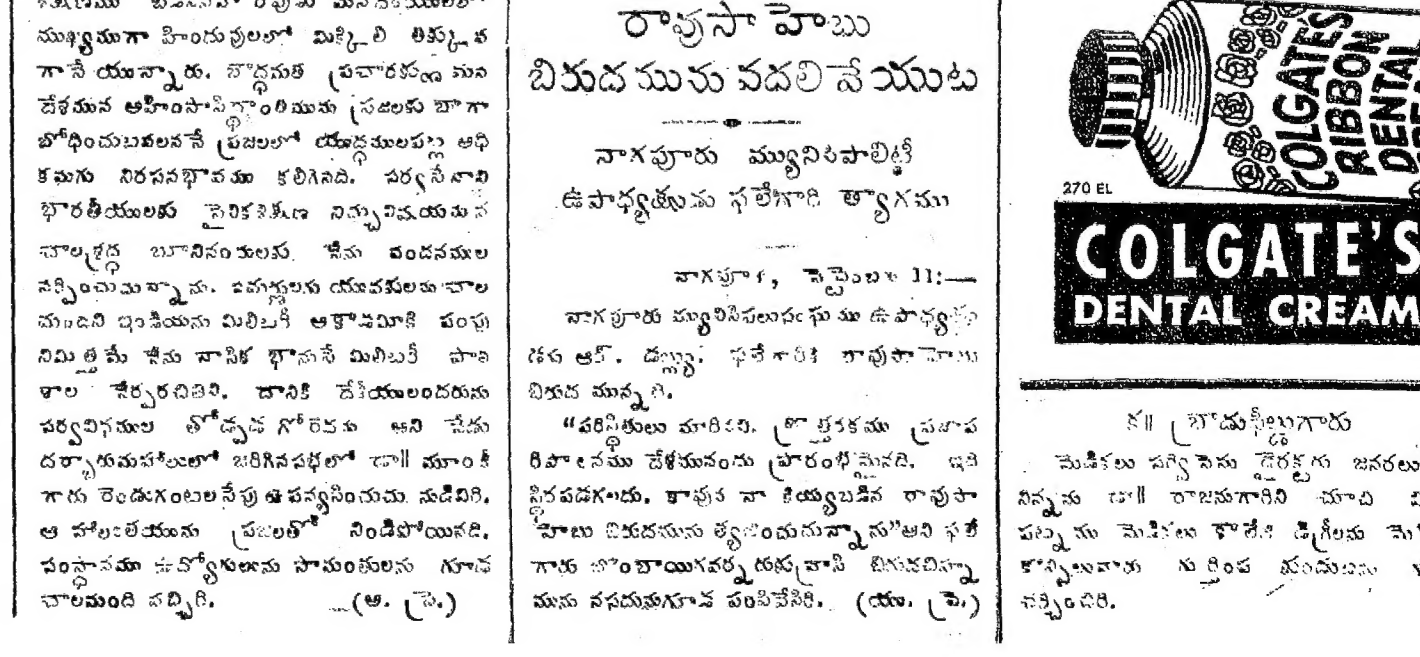 ముఖ్యముగా హిందువులలో మిక్కిలి తక్కువ
గానే యున్నారు. బౌద్ధమత ప్రచారకులు మన
దేశమున అహింసాసిద్ధాంతమును ప్రజలకు బాగా
బోధించుటవలననే ప్రజలలో యుద్ధములపట్ల అధి
కమగు నిరసనభావము కలిగినది. సర్వసేనాని
భారతీయులకు సైనికశిక్షణ నిచ్చువిషయమున
చాలశ్రద్ధ బూనినందులకు నేను వందనముల
నర్పించుచున్నాను. యువకులను చాల
మందిని ఇండియను మిలిటరీ అకాడమీకి పంపు
నిమిత్తమే నేను నాసిక భానుసే మిలిటరీ పాఠ
శాల నేర్పరచితిని. దానికి దేశీయులందరును
సర్వవిధముల తోడ్పడ గోరెదను అని నేడు
దర్బారుమహాలులో జరిగినసభలో డా॥ మూంజీ
గారు రెండుగంటలసేపు ఉపన్యసించుచు నుడివిరి.
ఆ హాలంతయును ప్రజలతో నిండిపోయినది.
సంస్థానము ఉద్యోగులును సామంతులును గూడ
చాలమంది వచ్చిరి. (అ. ప్రె.)
రావుసాహెబు
బిరుదమును వదలివేయుట
నాగపూరు మ్యునిసిపాలిటీ
ఉపాధ్యక్షుడు ఫలేగారి త్యాగము
నాగపూరు, సెప్టెంబరు 11:—
నాగపూరు మ్యునిసిపలుసంఘము ఉపాధ్యక్షు
డగు ఆర్. డబ్ల్యు. ఫలేగారికి రావుసాహెబు
బిరుద మున్నది.
“పరిస్థితులు మారినవి. క్రొత్తరకము ప్రజాప
రిపాలనము దేశమునందు ప్రారంభమైనది. ఇది
స్థిరపడగలదు. కావున నా కియ్యబడిన రావుసా
హెబు బిరుదమును త్యజించుచున్నాను”అని ఫలే
గారు బొంబాయిగవర్నరుకువ్రాసి బిరుదచిహ్న
మును సనదునుగూడ పంపివేసిరి. (యు. ప్రె.)
270 EL
COLGATE'S
RIBBON
DENTAL
COLGATE'S
DENTAL CREAM
క॥ బ్రాడుఫీల్డుగారు
మెడికలు సర్వీసెసు డైరెక్టరు జనరలు
నిన్నను డా॥ రాజనుగారిని చూచి
పట్నము మెడికలు కాలేజి డిగ్రీలను
కౌన్సిలువారు గుర్తింప
చర్చించిరి.